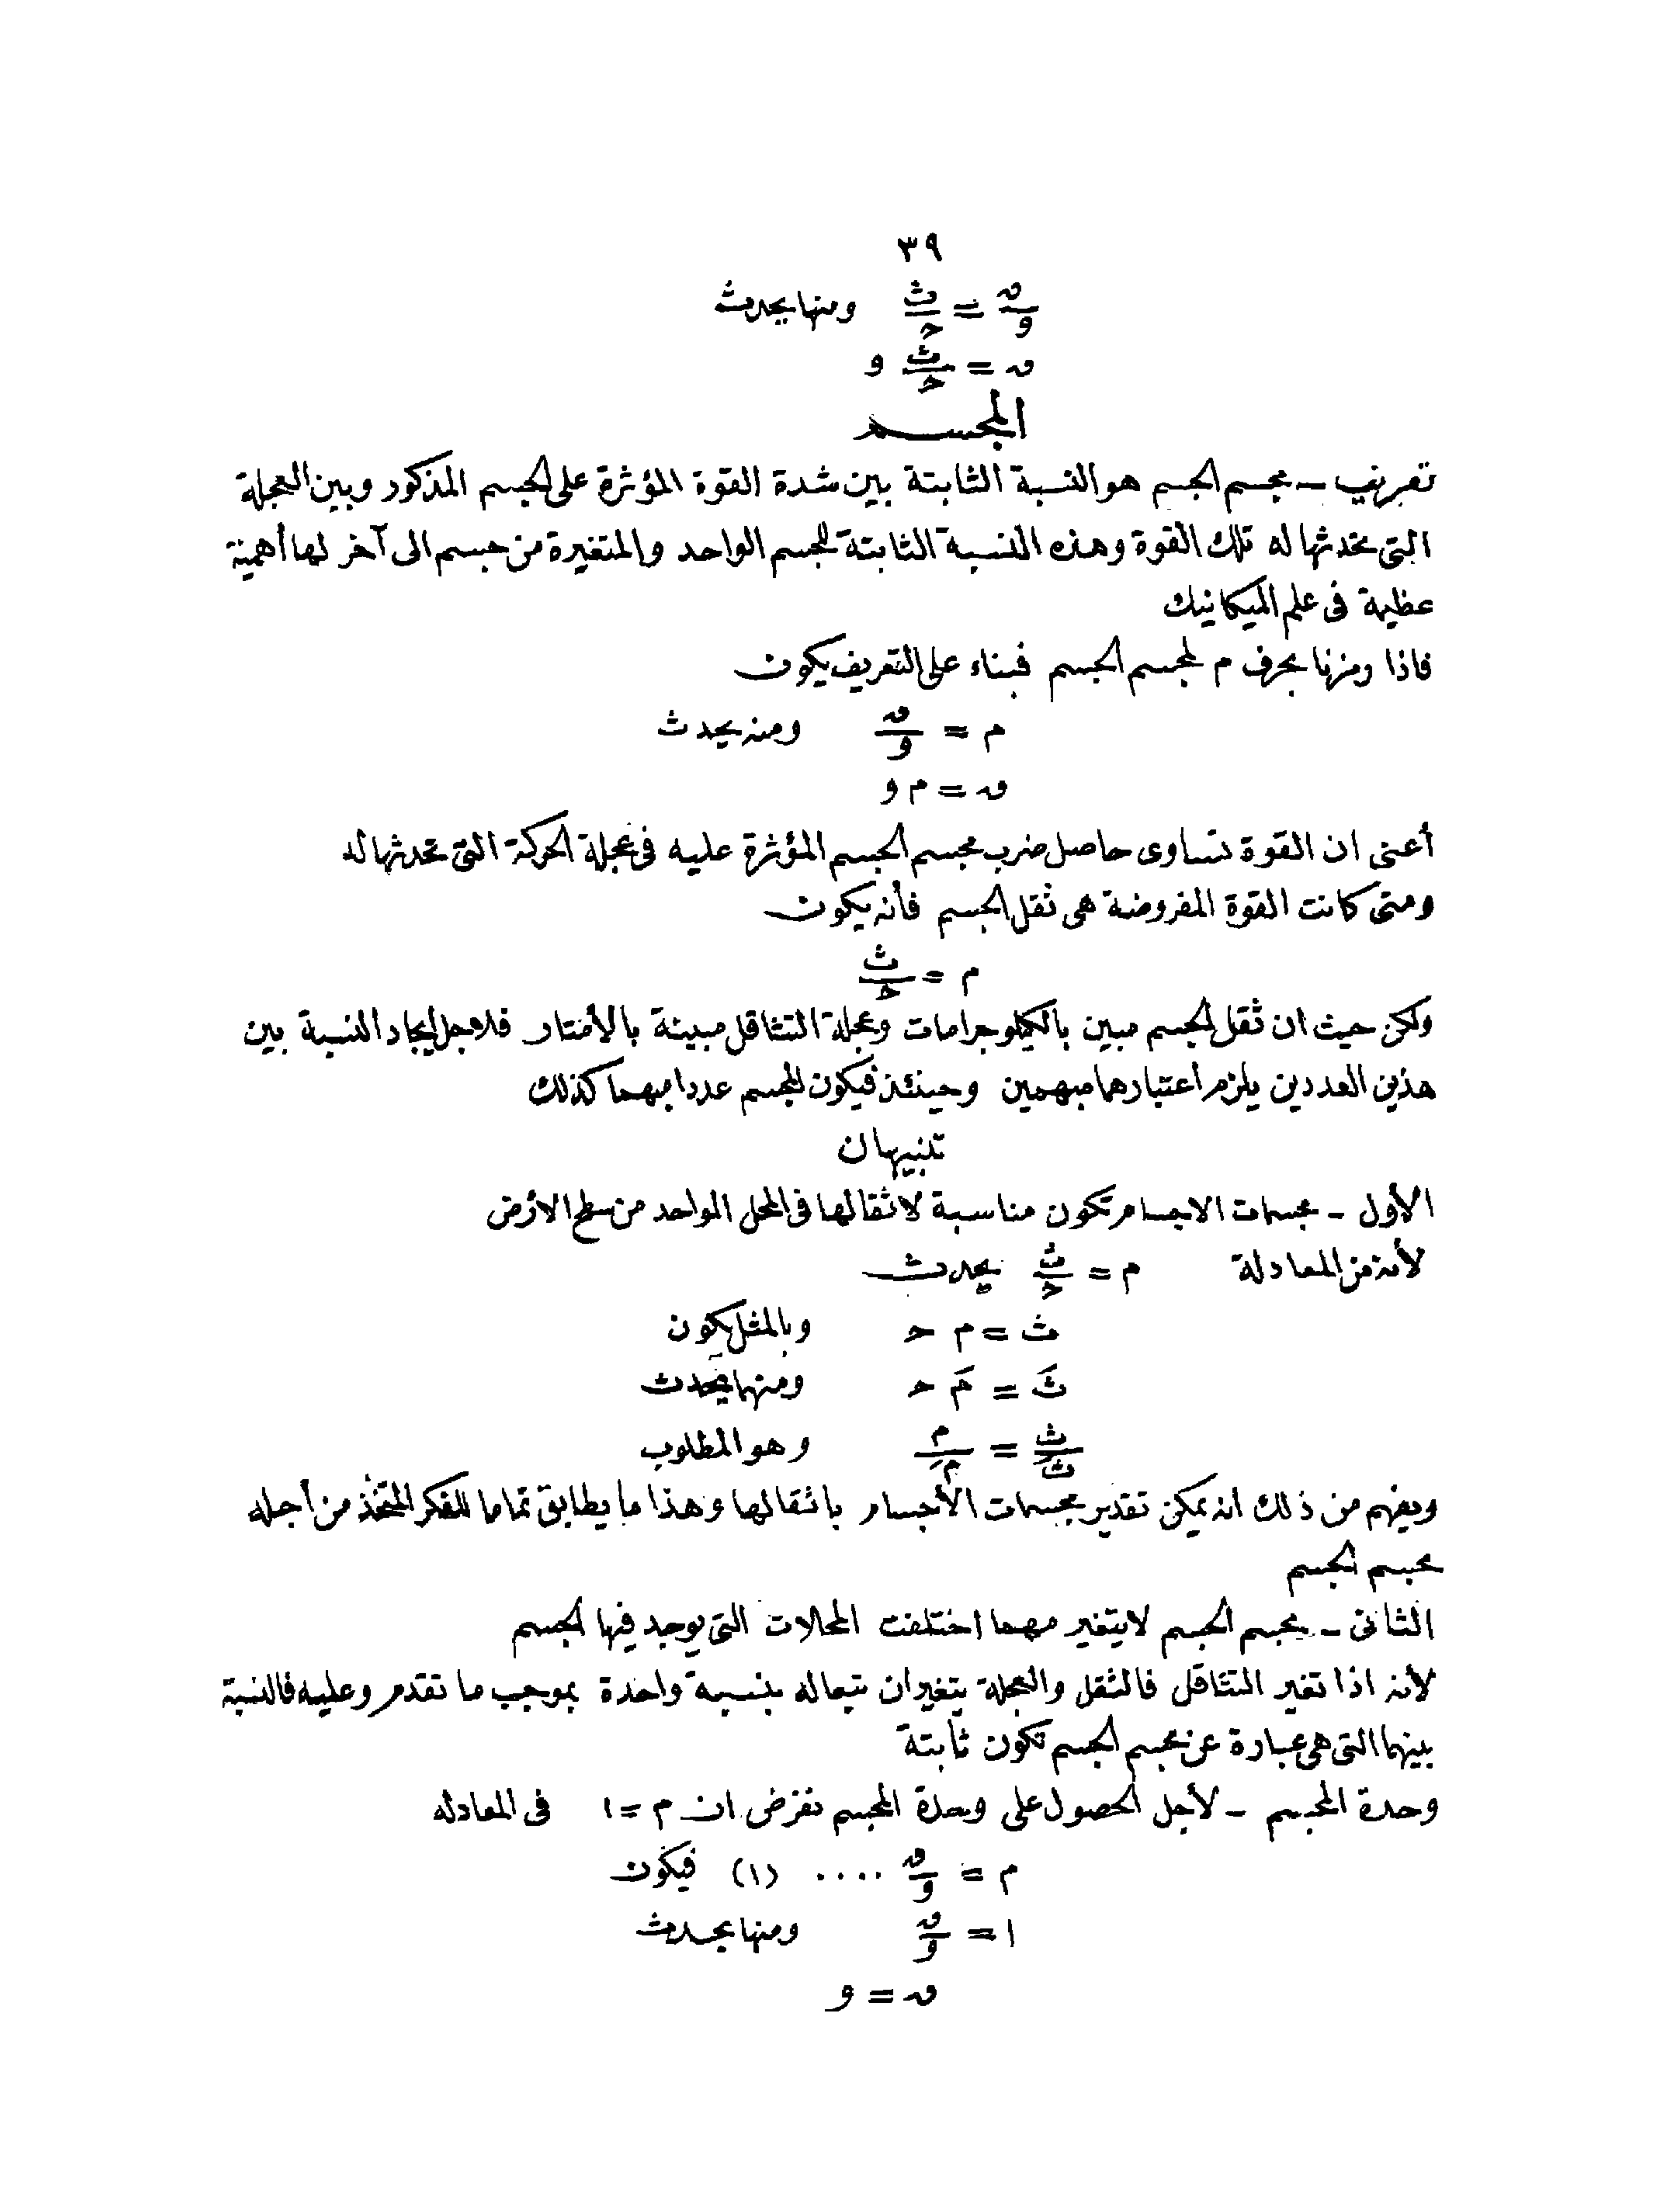 ٣٩
ق/و = ث/ح ومنها يحدث
ق = ث/ح و
المجسم
تعريف - مجسم الجسم هو النسبة الثابتة بين شدة القوة المؤثرة على الجسم المذكور وبين العجلة
التى تحدثها له تلك القوة وهذه النسبة الثابتة للجسم الواحد والمتغيرة من جسم الى آخر لها أهمية
عظيمة فى علم الميكانيك
فاذا ومزنا بحرف م لمجسم الجسم فبناء على التعريف يكون
م = ق/و ومنه يحدث
ق = م و
أعنى ان القوة تساوى حاصل ضرب مجسم الجسم المؤثرة عليه فى عجلة الحركة التى تحدثها له
ومتى كانت القوة المفروضة هى ثقل الجسم فأنه يكون
م = ث/ح
ولكن حيث ان ثقل الجسم مبين بالكيلوجرامات وعجلة التثاقل مبينة بالأمتار فلاجل ايجاد النسبة بين
هذين العددين يلزم اعتبارهما مبهمين وحينئذ فيكون المجسم عددا مبهما كذلك
تنبيهان
الأول - مجسمات الاجسام تكون مناسبة لاثقالها فى المحل الواحد من سطح الارض
لأنه من المعادلة م = ث/ح يحدث
ث = م ح وبالمثل يكون
ثَ = مَ ح ومنهما يحدث
ث/ثَ = م/مَ وهو المطلوب
ويفهم من ذلك انه يمكن تقدير مجسمات الأجسام باثقالها وهذا ما يطابق تماما للفكر المتخذ من أجله
مجسم الجسم
الثانى - مجسم الجسم لا يتغير مهما اختلفت المحلات التى يوجد فيها الجسم
لأنه اذا تغير التثاقل فالثقل والعجلة يتغيران تبعا له بنسبة واحدة بموجب ما تقدم وعليه فالنسبة
بينهما التى هى عبارة عن مجسم الجسم تكون ثابتة
وحدة المجسم - لأجل الحصول على وحدة المجسم نفرض ان م = ١ فى المعادله
م = ق/و .... (١) فيكون
١ = ق/و ومنها يحدث
ق = و